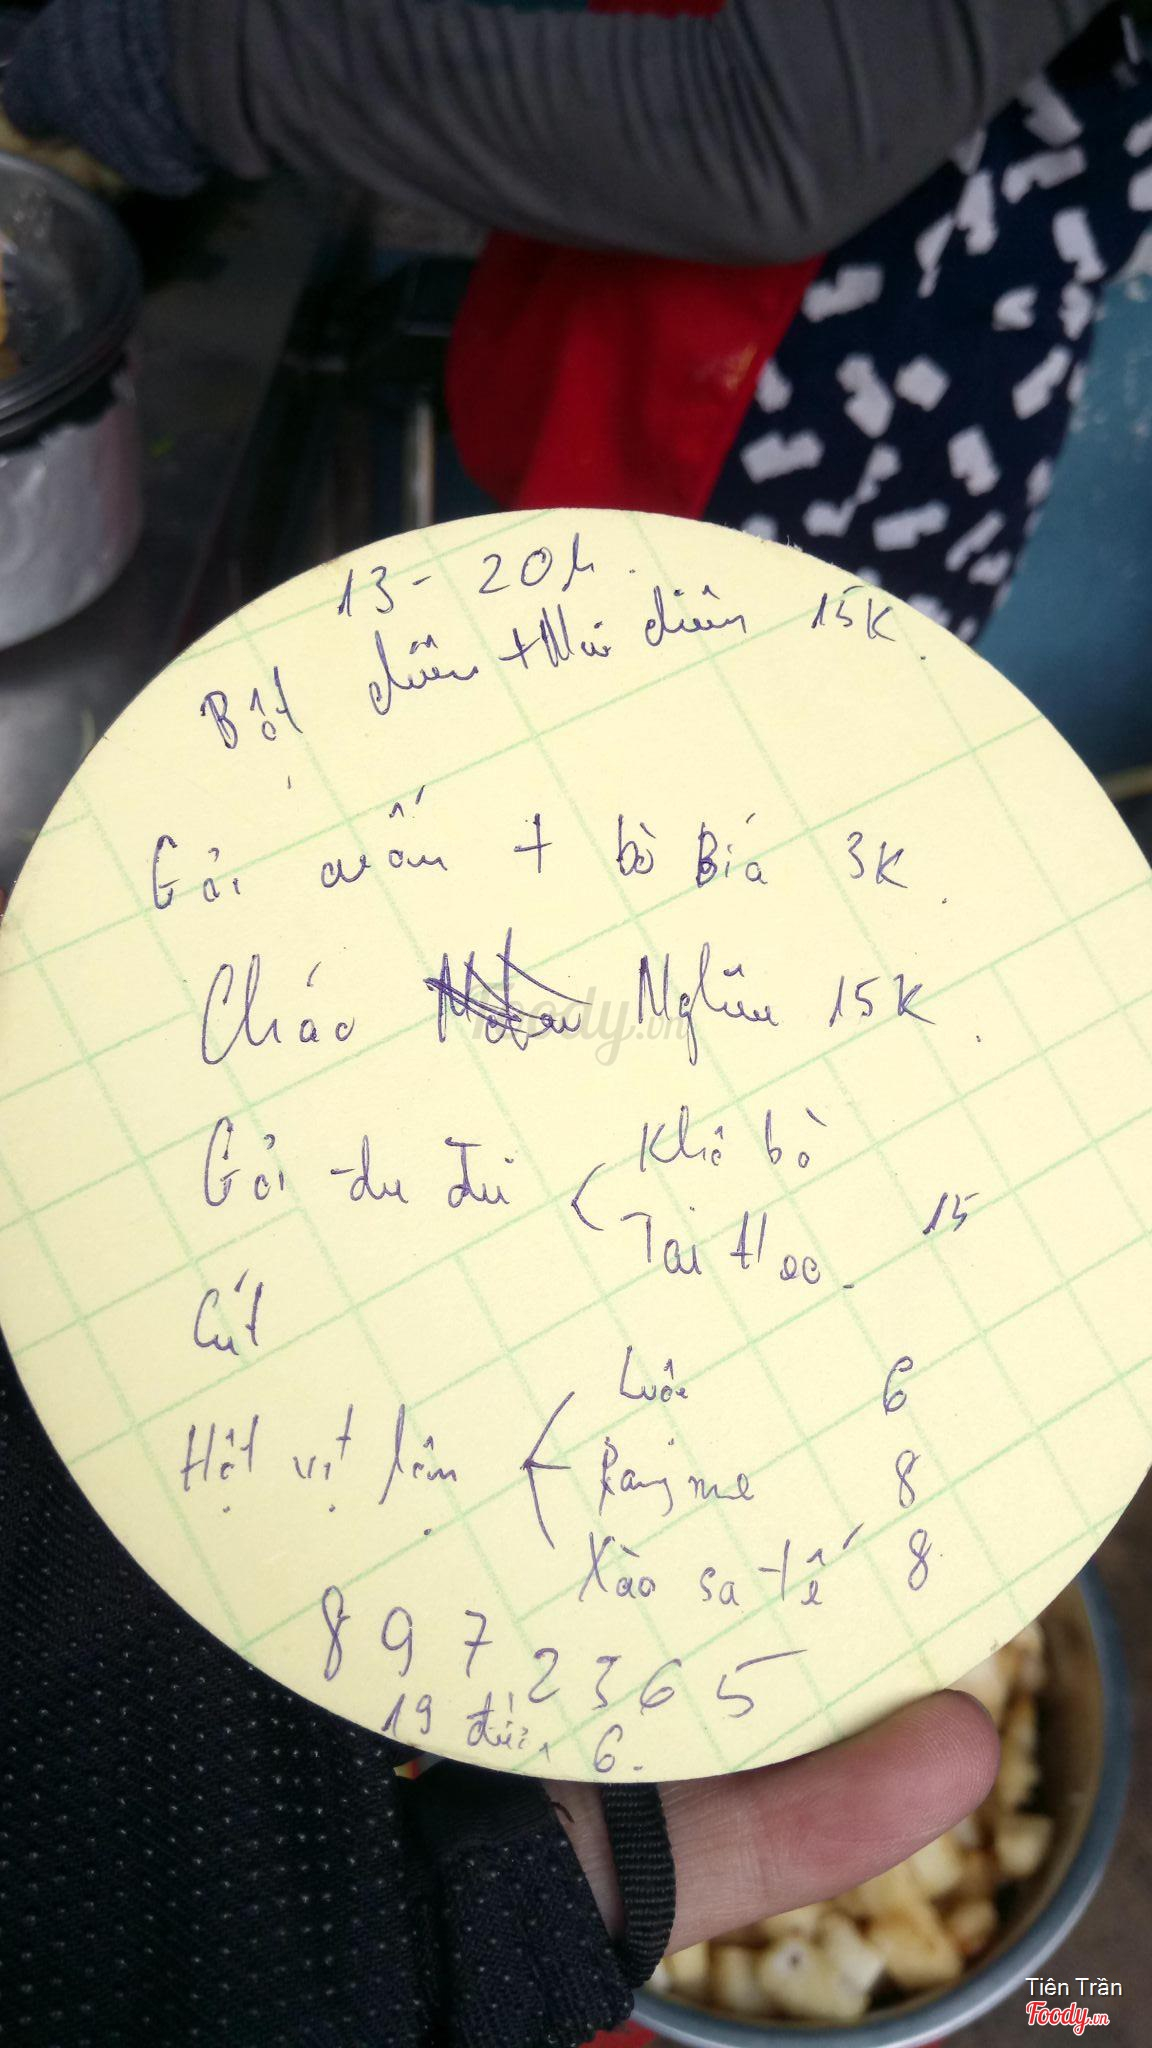 13 - 20h.
Bột chiên + Nui chiên 15K.
Gỏi cuốn + bò Bía 3K.
Cháo Nghêu 15K.
Gỏi đu đủ < Khô bò
Tai Heo. 15
Cút
Hột vịt lộn < Luộc 6
Rang me 8
Xào sa tế 8
8972365
19 6.
Foody.vn
Tiên Trần
Foody.vn